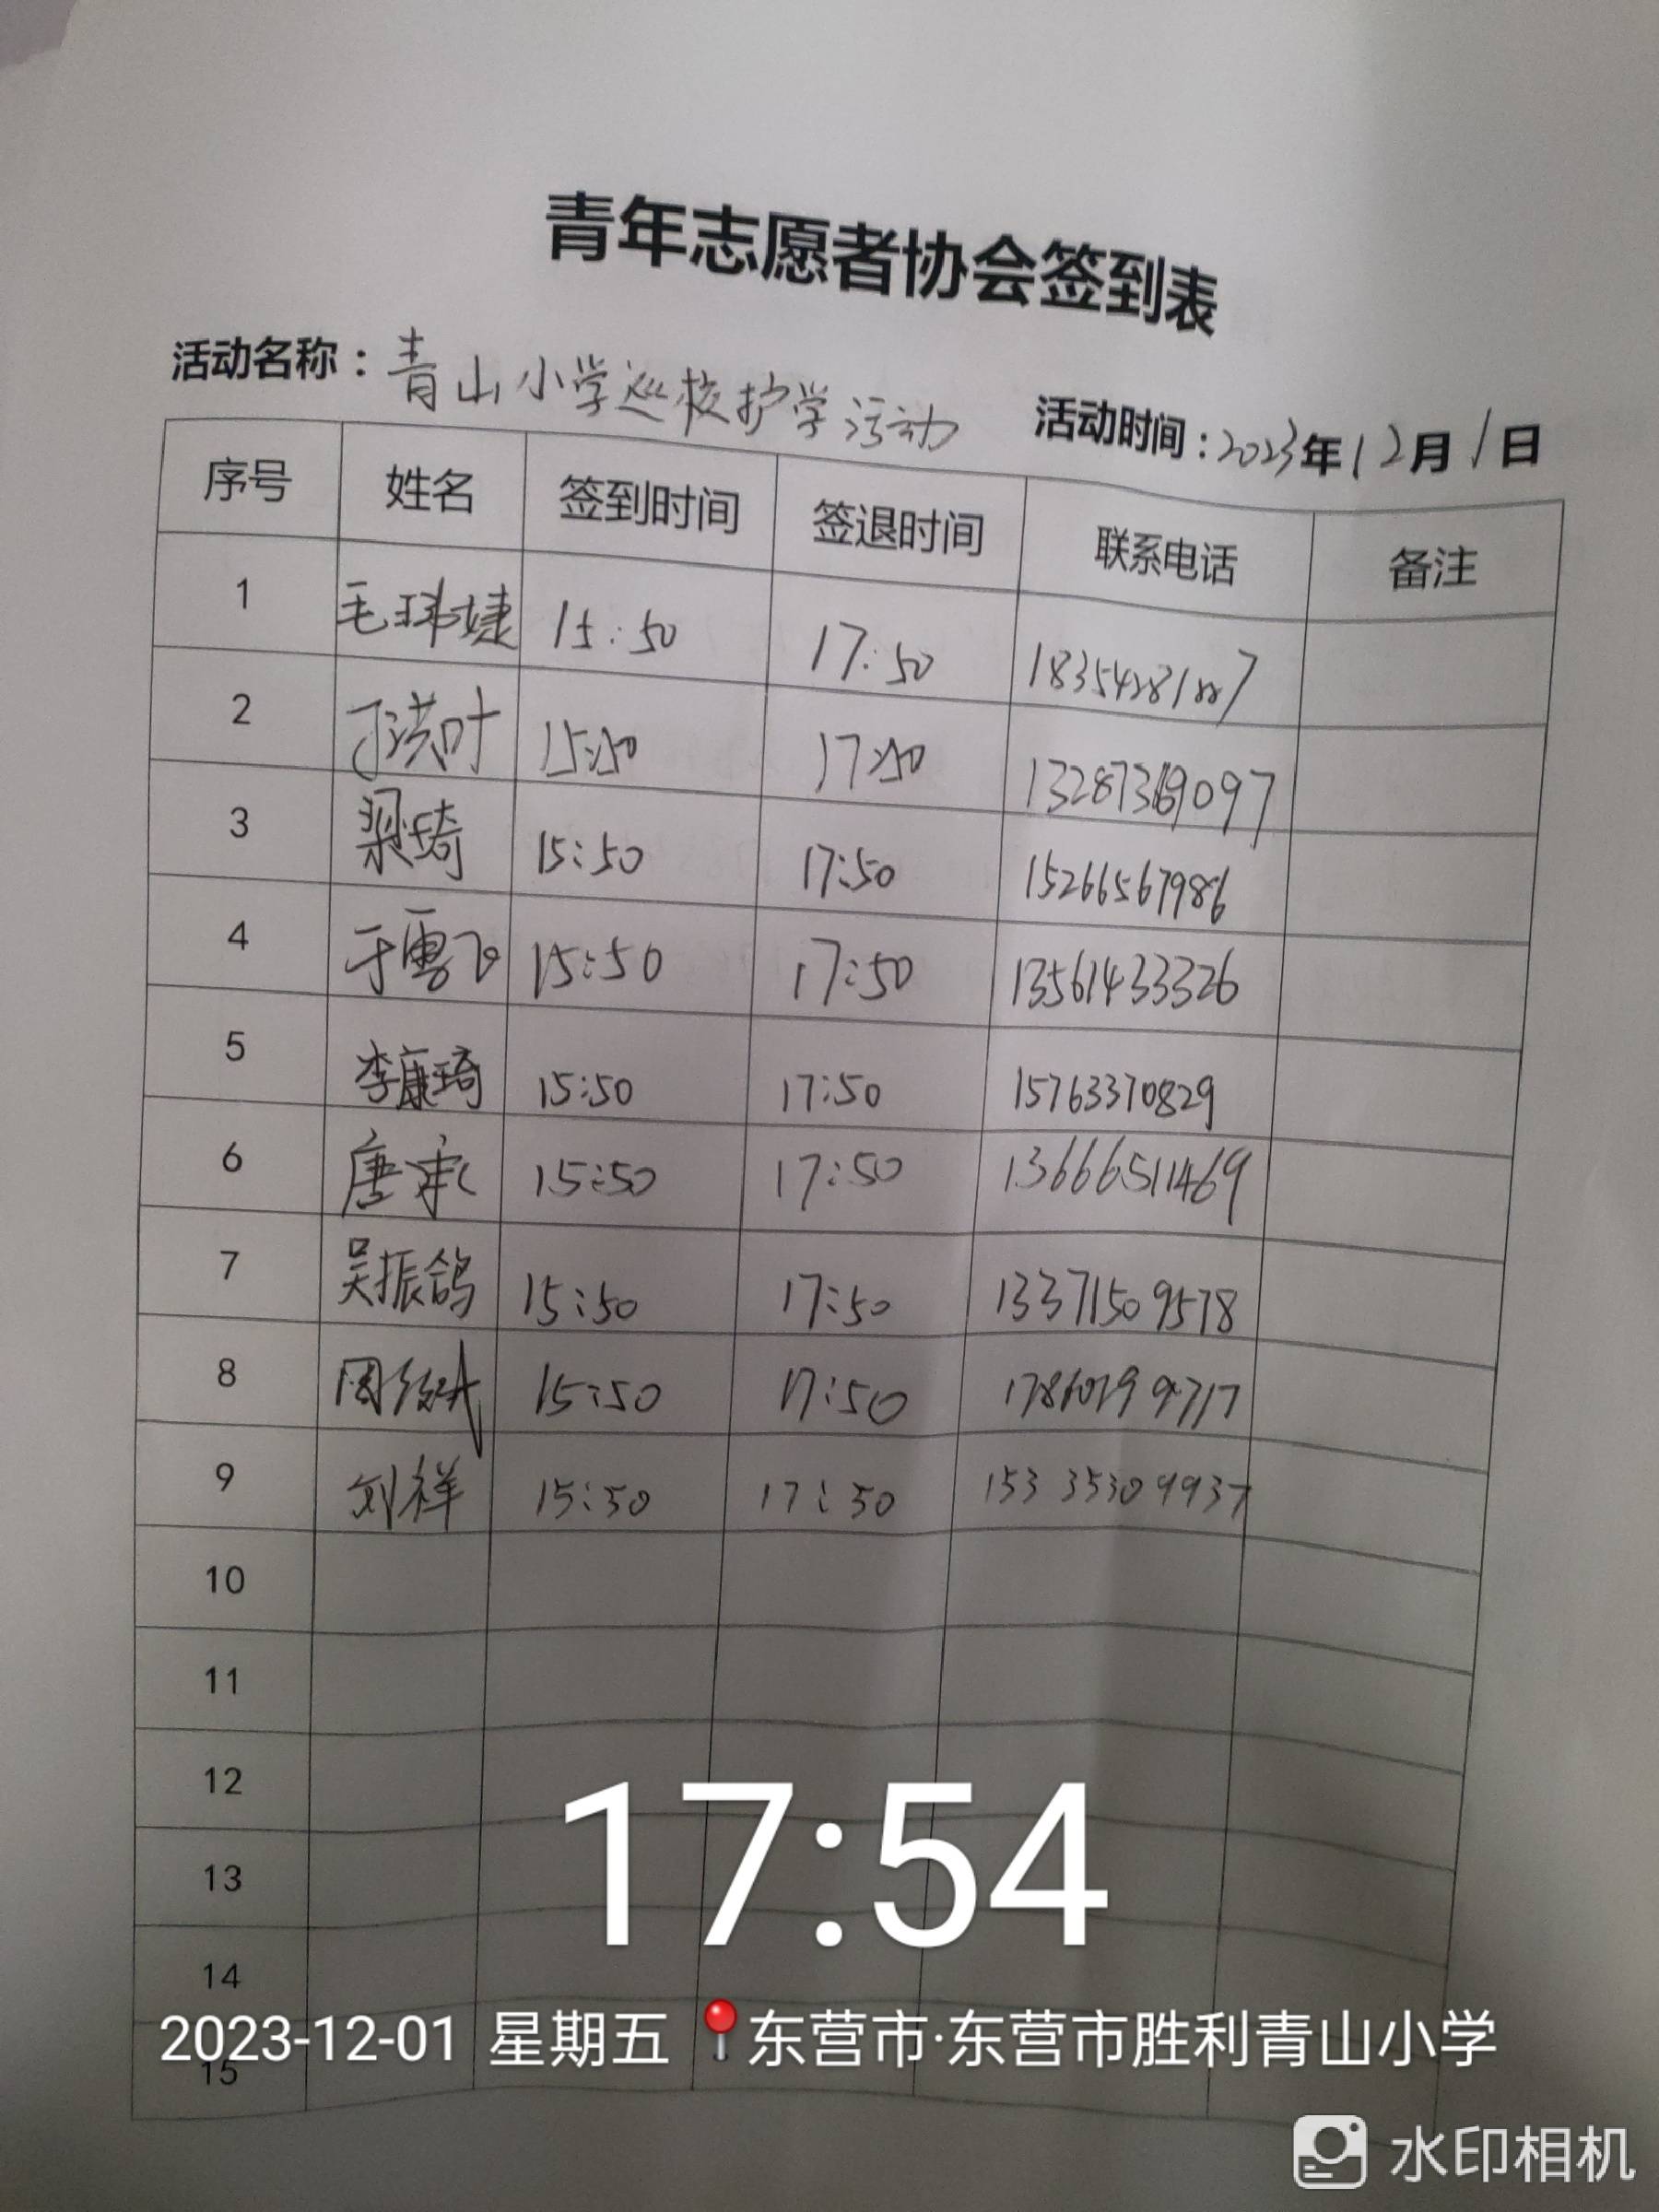 青年志愿者协会签到表
活动名称：青山小学巡校护学活动 活动时间：2023年12月1日
序号 姓名 签到时间 签退时间 联系电话 备注
1 毛玮婕 15:50 17:50
2 于洪叶 15:50 17:50
3 梁琦 15:50 17:50 15266567986
4 于雪飞 15:50 17:50 13561433326
5 李康琦 15:50 17:50 15763370829
6 唐承 15:50 17:50 13666511469
7 吴振鸽 15:50 17:50 13371509578
8 周 15:50 17:50
9 刘祥 15:50 17:50 15335309937
10
11
12
13
14
15
17:54
2023-12-01 星期五 东营市·东营市胜利青山小学
水印相机